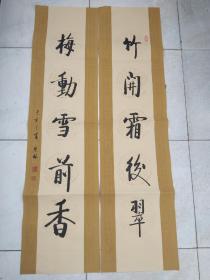 竹開霜後翠
梅動雪前香